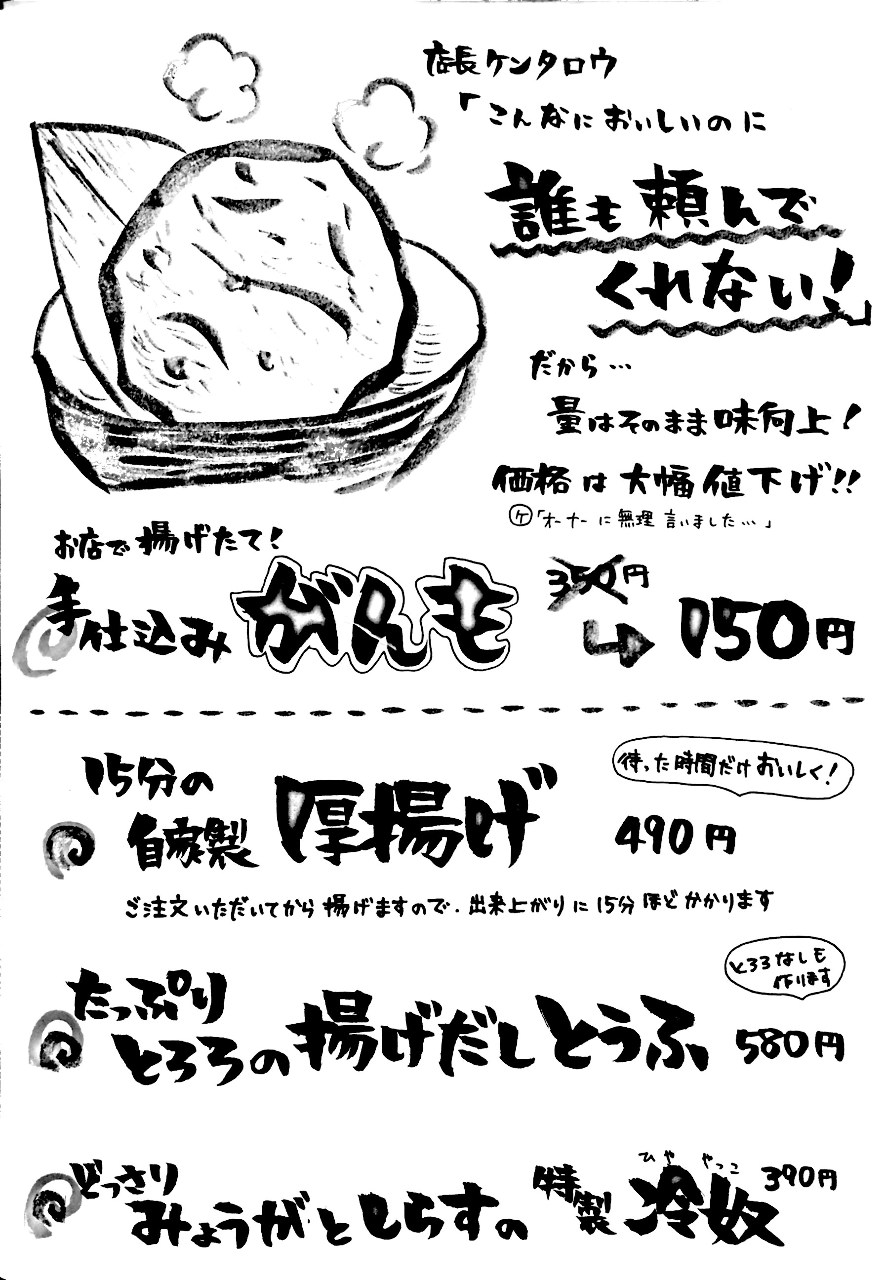 店長ケンタロウ
「こんなにおいしいのに
誰も頼んで
くれない!」
だから…
量はそのまま味向上!
価格は大幅値下げ!!
ケ「オーナーに無理言いました…」
お店で揚げたて!
手仕込みがんも
350円
150円
15分の
自家製 厚揚げ
待った時間だけおいしく!
490円
ご注文いただいてから揚げますので、出来上がりに15分ほどかかります
たっぷり
とろろの揚げだしとうふ
とろろなしも
作ります
580円
どっさり
みょうがとしらすの特製冷奴
ひややっこ
390円